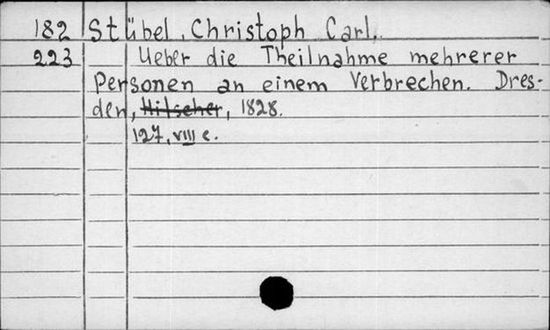 182 Stübel, Christoph Carl.
223 Ueber die Theilnahme mehrerer
Personen an einem Verbrechen. Dres-
den, Hilscher, 1828.
127, VIII c.